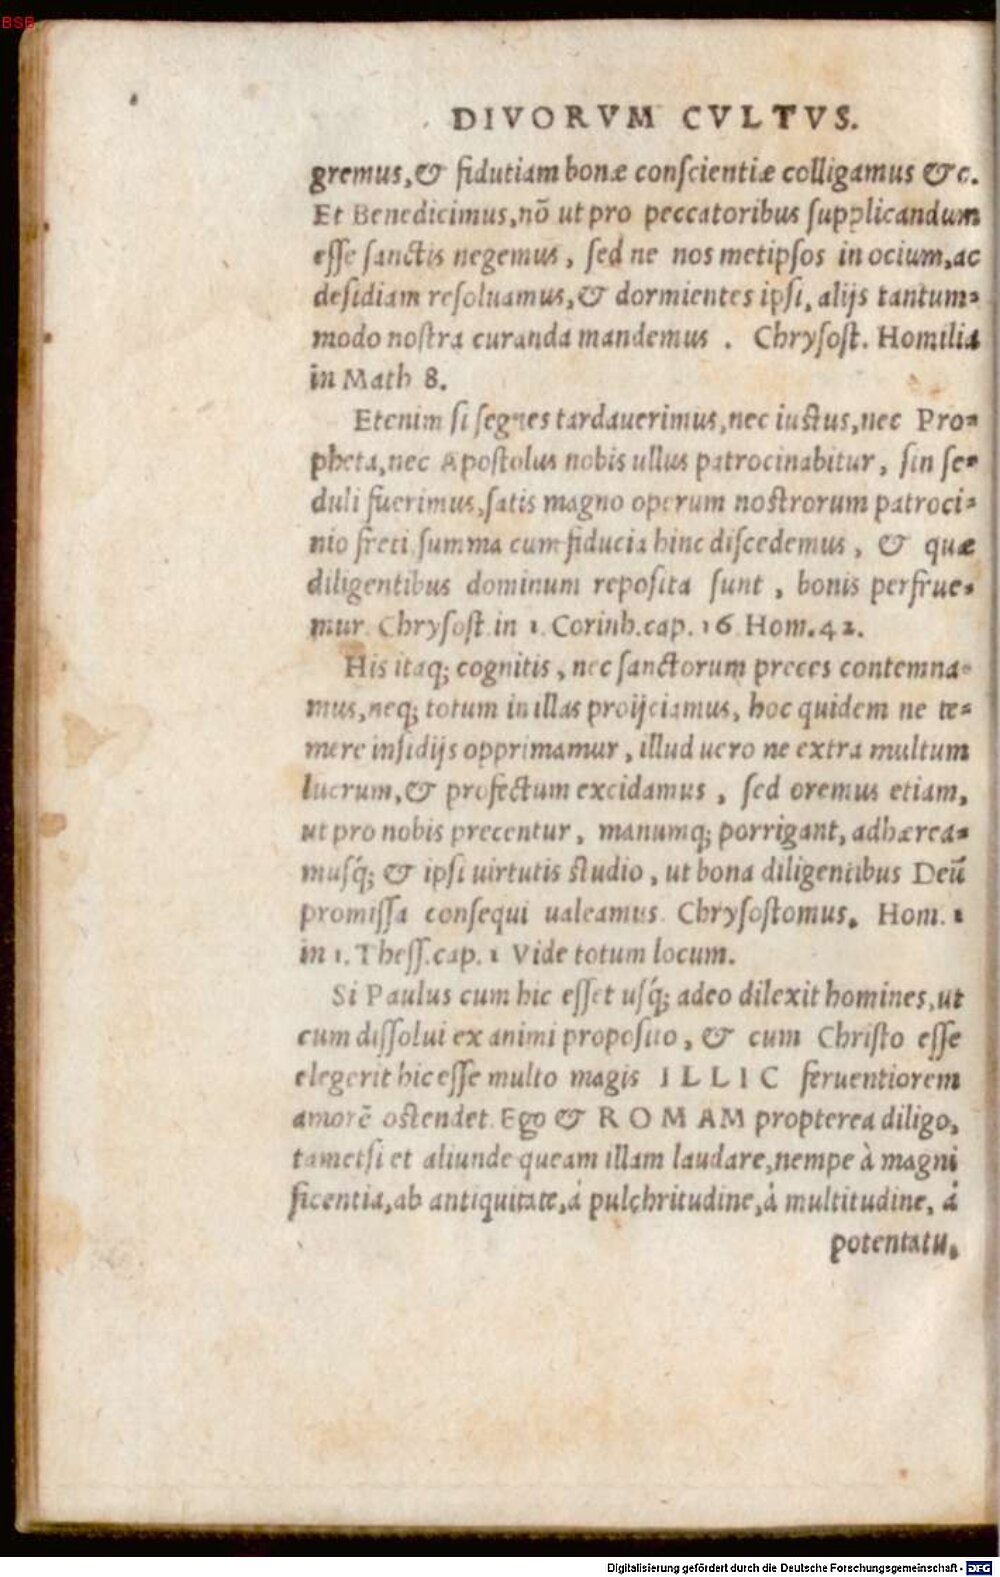 BSB
DIVORVM CVLTVS.
gremus, & fidutiam bonæ conscientiæ colligamus &c.
Et Benedicimus, nō ut pro peccatoribus supplicandum
esse sanctis negemus, sed ne nos metipsos in ocium, ac
desidiam resoluamus, & dormientes ipsi, alijs tantum=
modo nostra curanda mandemus . Chrysost. Homilia
in Math 8.
Etenim si segnes tardauerimus, nec iustus, nec Pro=
pheta, nec Apostolus nobis ullus patrocinabitur, sin se=
duli fuerimus, satis magno operum nostrorum patroci=
nio freti summa cum fiducia hinc discedemus, & quæ
diligentibus dominum reposita sunt, bonis perfrue=
mur. Chrysost in 1. Corinh. cap. 16 Hom. 42.
His itaq; cognitis, nec sanctorum preces contemna=
mus, neq; totum in illas proijciamus, hoc quidem ne te=
mere insidijs opprimamur, illud uero ne extra multum
lucrum, & profectum excidamus, sed oremus etiam,
ut pro nobis precentur, manumq; porrigant, adhærea=
musq́; & ipsi uirtutis studio, ut bona diligentibus Deū
promissa consequi ualeamus. Chrysostomus. Hom. 1
in 1. Thess. cap. 1 Vide totum locum.
Si Paulus cum hic esset usq́; adeo dilexit homines, ut
cum dissolui ex animi proposito, & cum Christo esse
elegerit hic esse multo magis ILLIC feruentiorem
amorē ostendet. Ego & ROMAM propterea diligo,
tametsi et aliunde queam illam laudare, nempe à magni
ficentia, ab antiquitate, à pulchritudine, à multitudine, á
potentatu.
Digitalisierung gefördert durch die Deutsche Forschungsgemeinschaft - DFG